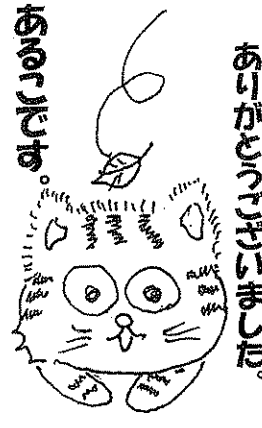 ありがとうございました。
あるこです。